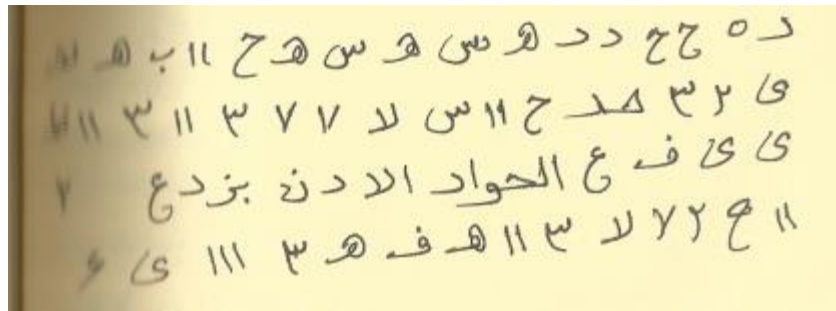 د ه ح ح د د ه س ه س ه ح ١١ ب ه
ى ٢ ٣ ح ١١ س لا ٧ ٧ ٣ ١١ ٣ ١١
ى ى ف ع الحواد الا د ن بز د ع ٧
١١ ع ٢ ٧ لا ٣ ١١ ه ف ه ٣ ١١١ ى ٤